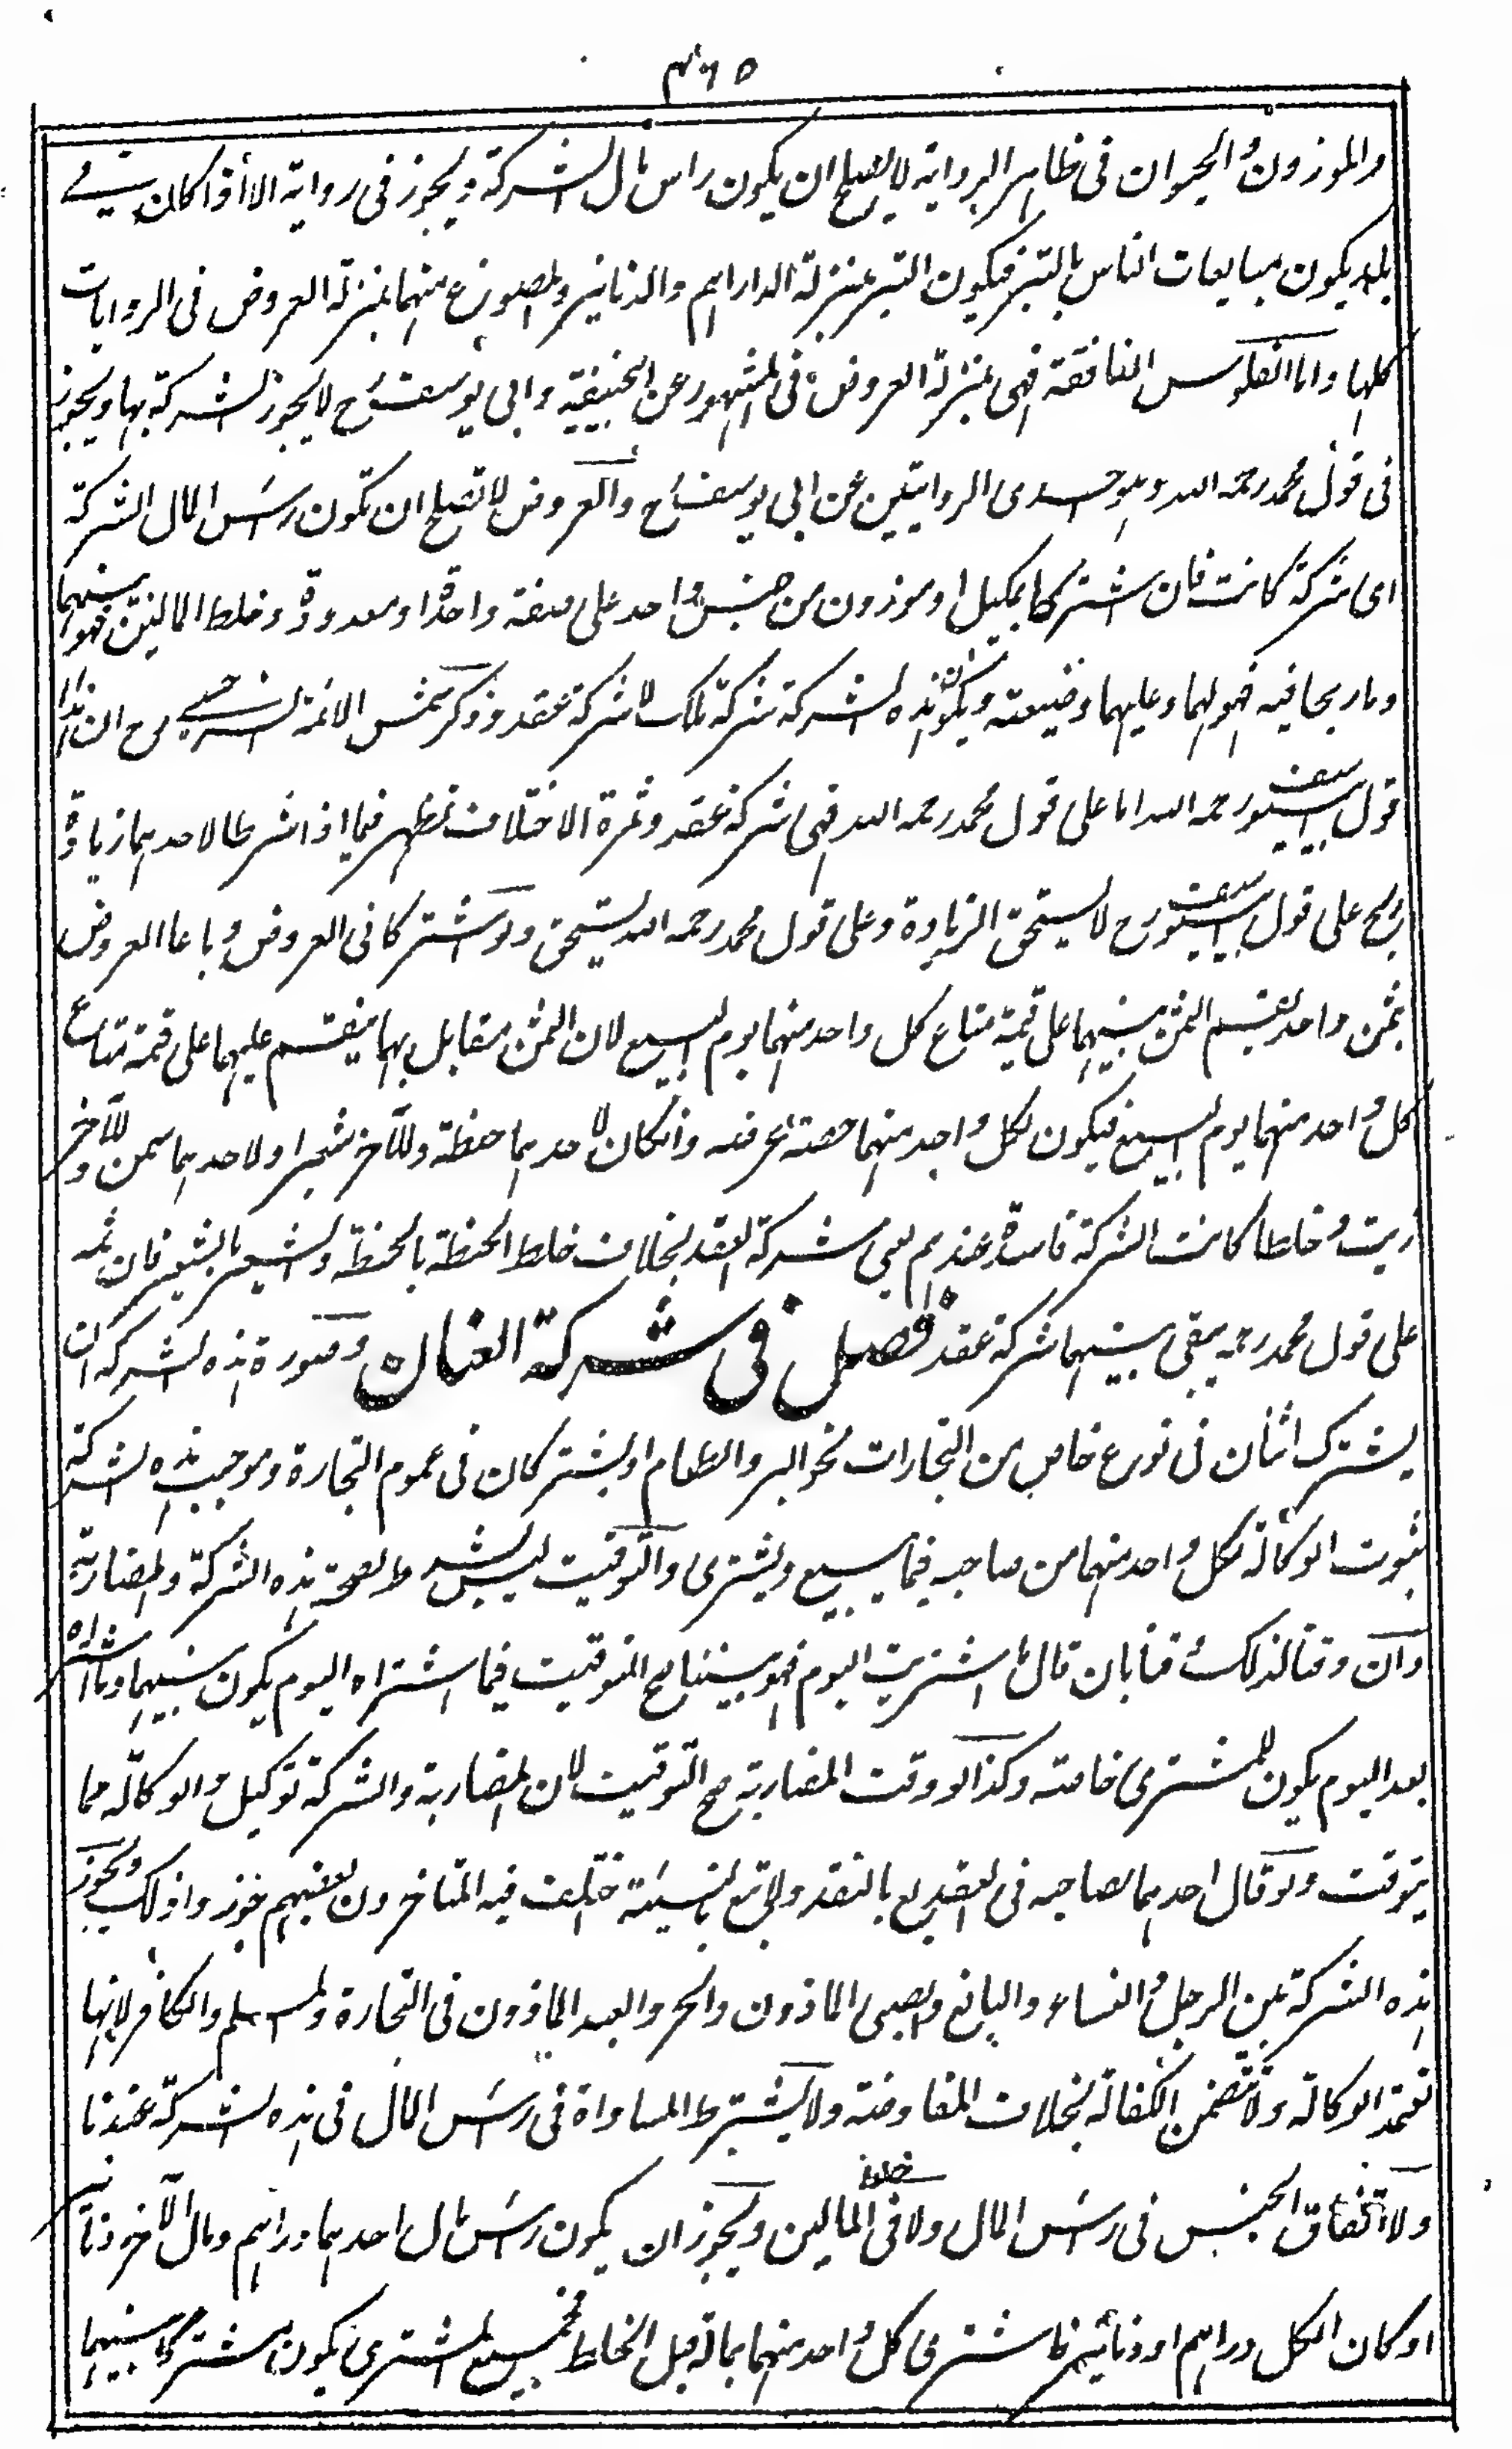 ٤٦٥
والموزون والحيوان فى ظاهر الرواية لا يصلح ان يكون راس مال الشركة ويجوز فى رواية الا اذا كان فے
بلد يكون مبايعات الناس بالتبر فيكون التبر بمنزلة الدراهم والدنانير والمصوغ منهما بمنزلة العروض فى الروايات
كلها واما الفلوس النافقة فهى بمنزلة العروض فى المشهور عن ابيحنيفة وابى يوسف رح لا يجوز الشركة بها ويجوز
فى قول محمد رحمه الله وهو احدى الروايتين عن ابى يوسف رح والعروض لا تصلح ان تكون رأس المال الشركة
اى شركة كانت فان اشتركا بمكيل او موزون من جنس واحد على صفة واحدة او معدودة وخلطا المالين فهو بينهما
وما ربحا فيه فهو لهما وعليهما وضيعته ويكون هذه الشركة شركة ملك لا شركة عقد وذكر شمس الائمة السرخسے رح ان هذا
قول ابييوسف رحمه الله اما على قول محمد رحمه الله فهى شركة عقد وثمرة الاختلاف تظهر فيما اذا شرطا لاحدهما زيادة
ربح على قول ابييوسف رح لا يستحق الزيادة وعلى قول محمد رحمه الله يستحق ولو اشتركا فى العروض وباعا العروض
بثمن واحد يقسم الثمن بينهما على قيمة متاع كل واحد منهما يوم البيع لان الثمن مقابل بهما فيقسم عليهما على قيمة متاع
كل واحد منهما يوم البيع فيكون لكل واحد منهما حصة عرضه وانكان لاحدهما حنطة وللآخر شعير او لاحدهما سمن وللآخر
زيت وخلطا كانت الشركة فاسدة عندهم يعنى شركة العقد بخلاف خلط الحنطة بالحنطة والشعير بالشعير فان ثمه
على قول محمد رحمه يبقى بينهما شركة عقد فصل فى شركة العنان وصورة هذه الشركة ان
يشترك اثنان فى نوع خاص من التجارات نحو البر والطعام او يشتركان فى عموم التجارة وموجب هذه الشركة
ثبوت الوكالة لكل واحد منهما من صاحبه فيما يبيع ويشترى والتوقيت ليس بشرط لصحة هذه الشركة والمضاربة
وان وقتا لذلك وقتا بان قال ما اشتريت اليوم فهو بيننا صح التوقيت فيما اشتراه اليوم يكون بينهما وما اشتراه
بعد اليوم يكون للمشترى خاصة وكذا لو وقت المضاربة صح التوقيت لان المضاربة والشركة توكيل والوكالة مما
يتوقت ولو قال احدهما لصاحبه فى العقد بع بالنقد ولا تبع بالنسيئة اختلف فيه المتاخرون بعضهم جوزوا ذلك ويجوز
هذه الشركة بين الرجل والنساء والبالغ والصبى الماذون والحر والعبد الماذون فى التجارة والمسلم والكافر لانها
تعتمد الوكالة ولا تتضمن الكفالة بخلاف المفاوضة ولا يشترط المساواة فى رأس المال فى هذه الشركة عندنا
ولا اتفاق الجنس فى رأس المال ولا خلط المالين ويجوز ان يكون رأس مال احدهما دراهم ومال الآخر دنانير
او كان الكل دراهم او دنانير فاشترى كل واحد منهما بماله قبل الخلط فجميع المشترى يكون مشتركا بينهما